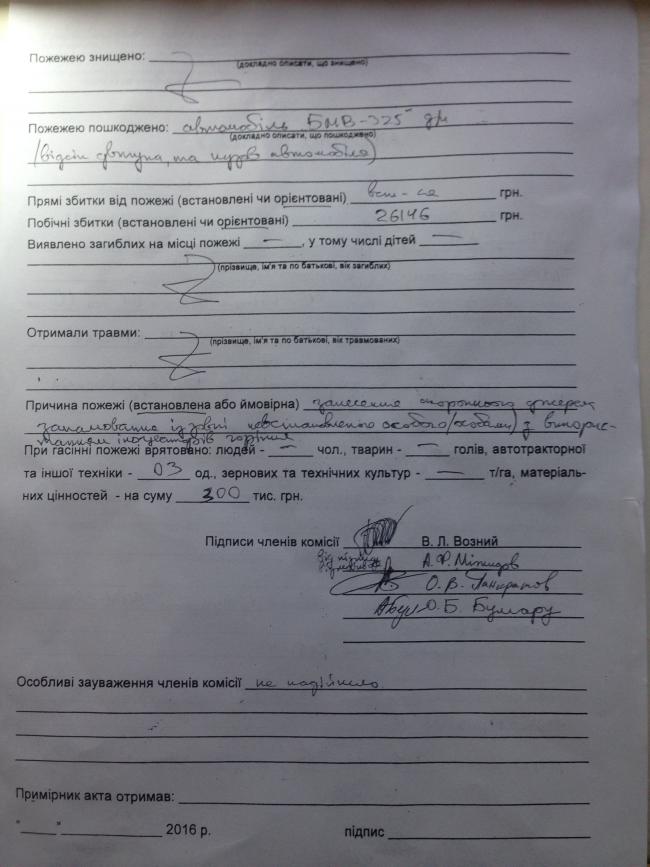 Пожежею знищено:
(докладно описати, що знищено)
Пожежею пошкоджено: автомобіль БМВ-325
(докладно описати, що пошкоджено)
(відсік двигуна, та кузов автомобіля)
Прямі збитки від пожежі (встановлені чи орієнтовані) вст-ся грн.
Побічні збитки (встановлені чи орієнтовані) 26146 грн.
Виявлено загиблих на місці пожежі —, у тому числі дітей —
(прізвище, ім'я та по батькові, вік загиблих)
Отримали травми:
(прізвище, ім'я та по батькові, вік травмованих)
Причина пожежі (встановлена або ймовірна) занесення стороннього джерела
запалювання із зовні невстановленою особою (особами) з викорис-
танням ініціаторів горіння
При гасінні пожежі врятовано: людей - — чол., тварин - — голів, автотракторної
та іншої техніки - 03 од., зернових та технічних культур - — т/га, матеріаль-
них цінностей - на суму 300 тис. грн.
Підписи членів комісії В. Л. Возний
від підпису
А. Ф.
О. В. Панкратов
О. Б. Булгару
Особливі зауваження членів комісії не надійшло
Примірник акта отримав:
"____"____ 2016 р. підпис